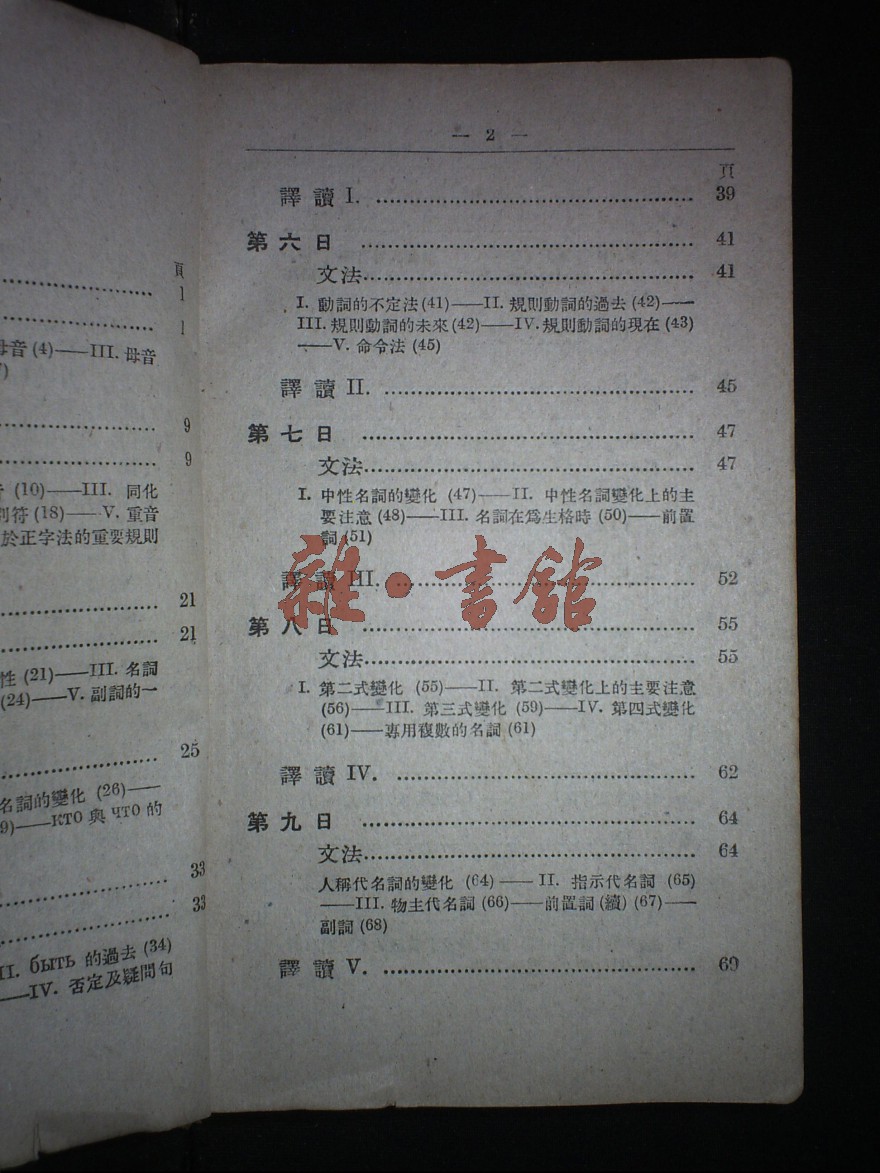 頁
1
1
母音 (4)——III. 母音
9
9
(10)——III. 同化
符 (18)——V. 重音
於正字法的重要規則
21
21
性 (21)——III. 名詞
(24)——V. 副詞的一
25
名詞的變化 (26)——
9)——КТО 與 ЧТО 的
33
33
II. быть 的過去 (34)
——IV. 否定及疑問句
— 2 —
頁
譯讀 I. ........ 39
第六日 ........ 41
文法........ 41
I. 動詞的不定法 (41)——II. 規則動詞的過去 (42)——
III. 規則動詞的未來 (42)——IV. 規則動詞的現在 (43)
——V. 命令法 (45)
譯讀 II. ........ 45
第七日 ........ 47
文法........ 47
I. 中性名詞的變化 (47)——II. 中性名詞變化上的主
要注意 (48)——III. 名詞在爲生格時 (50)——前置
詞 (51)
譯讀 III. ........ 52
雜·書館
第八日 ........ 55
文法........ 55
I. 第二式變化 (55)——II. 第二式變化上的主要注意
(56)——III. 第三式變化 (59)——IV. 第四式變化
(61)——專用複數的名詞 (61)
譯讀 IV. ........ 62
第九日 ........ 64
文法........ 64
人稱代名詞的變化 (64)——II. 指示代名詞 (65)
——III. 物主代名詞 (66)——前置詞(續) (67)——
副詞 (68)
譯讀 V. ........ 69